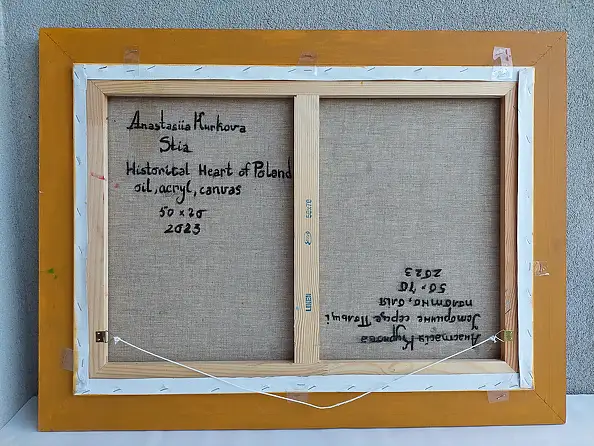 Anastasiia Kurkova
Stia
Historical Heart of Poland
oil, acryl, canvas
50 x 70
2023
50x70
Анастасія Куркова
Історичне серце Польщі
полотно, олія
50 x 70
2023